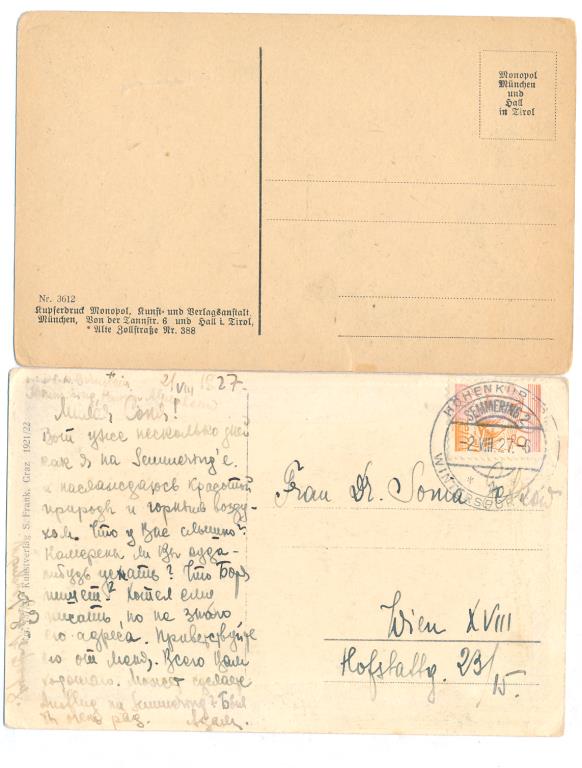 Monopol
München
und
Hall
in Tirol
Nr. 3612
Kupferdruck Monopol, Kunst- und Verlagsanstalt
München, Von der Tannstr. 6 und Hall i. Tirol,
* Alte Zollstraße Nr. 388
2/VIII 1927.
Милая Соня!
Вот уже несколько дней
как я на Semmering'е
и наслаждаюсь красотой
природы и горным возду-
хом. Что у Вас слышно?
Намерены ли Вы куда-
нибудь уехать? Что Боря
пишет? Хотел ему
писать, но не знаю
его адреса. Приветствуйте
его от меня. Всего Вам
хорошего. Может сделаете
на Semmering? Был
бы очень рад.
Kunstverlag S. Frank, Graz 1921/22
HÖHENKURORT
SEMMERING 2
2.VIII.27
WINTERSPORT
Frau Dr. Sonia
Wien XVIII
Hofstattg. 23/15.